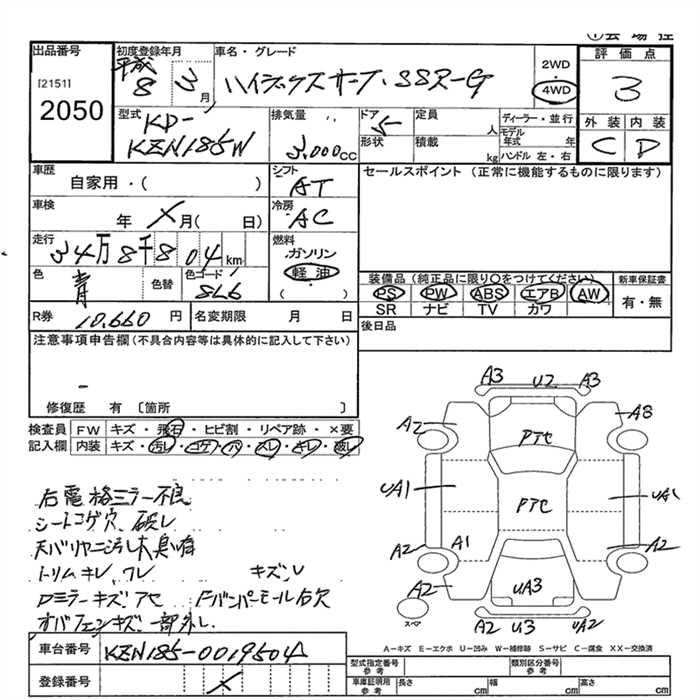 ① 会場控
出品番号
[2151]
2050
初度登録年月
平成
8 3 月
車名・グレード
ハイラックスサーフ・SSR-G
2WD
4WD
評価点
3
外装 内装
C D
型式
KD-
KZN185W
排気量
3,000cc
ドア
5
形状
定員
人
積載
kg
ディーラー・並行
モデル年式 年
ハンドル 左・右
車歴
自家用・( )
シフト
AT
車検
年 X 月( 日)
冷房
AC
走行
34万8千804km
燃料
ガソリン
軽油
( )
色
青
色替
色コード
8L6
R券
10,660 円
名変期限 月 日
セールスポイント(正常に機能するものに限ります)
装備品(純正品に限り○をつけてください)
PS PW ABS エアB AW
SR ナビ TV カワ
新車保証書
有・無
後日品
注意事項申告欄(不具合内容等は具体的に記入して下さい)
修復歴 有 〔箇所 〕
検査員記入欄
FW キズ・飛石・ヒビ割・リペア跡・×要
内装 キズ・汚レ・コゲ・穴・スレ・キレ・破レ
右電格ミラー不良
シートコゲ穴、破レ
天バリヤニ汚レ大臭有
トリムキレ、ワレ キズ、U
Dミラーキズ、アセ Fバンパーモール右欠
オバフェンキズ、一部外レ
車台番号
KZN185-0019504
登録番号
X
A3 U2 A3
A2 A8
PTC
UA1 PTC UA1
A2 A1 A2
A2 UA3
スペア
A2 U3 UA2
A-キズ E-エクボ U-凹み W-補修跡 S-サビ C-腐食 XX-交換済
型式指定番号 参考
類別区分番号 参考
車庫証明用 参考
長さ cm 幅 cm 高さ cm